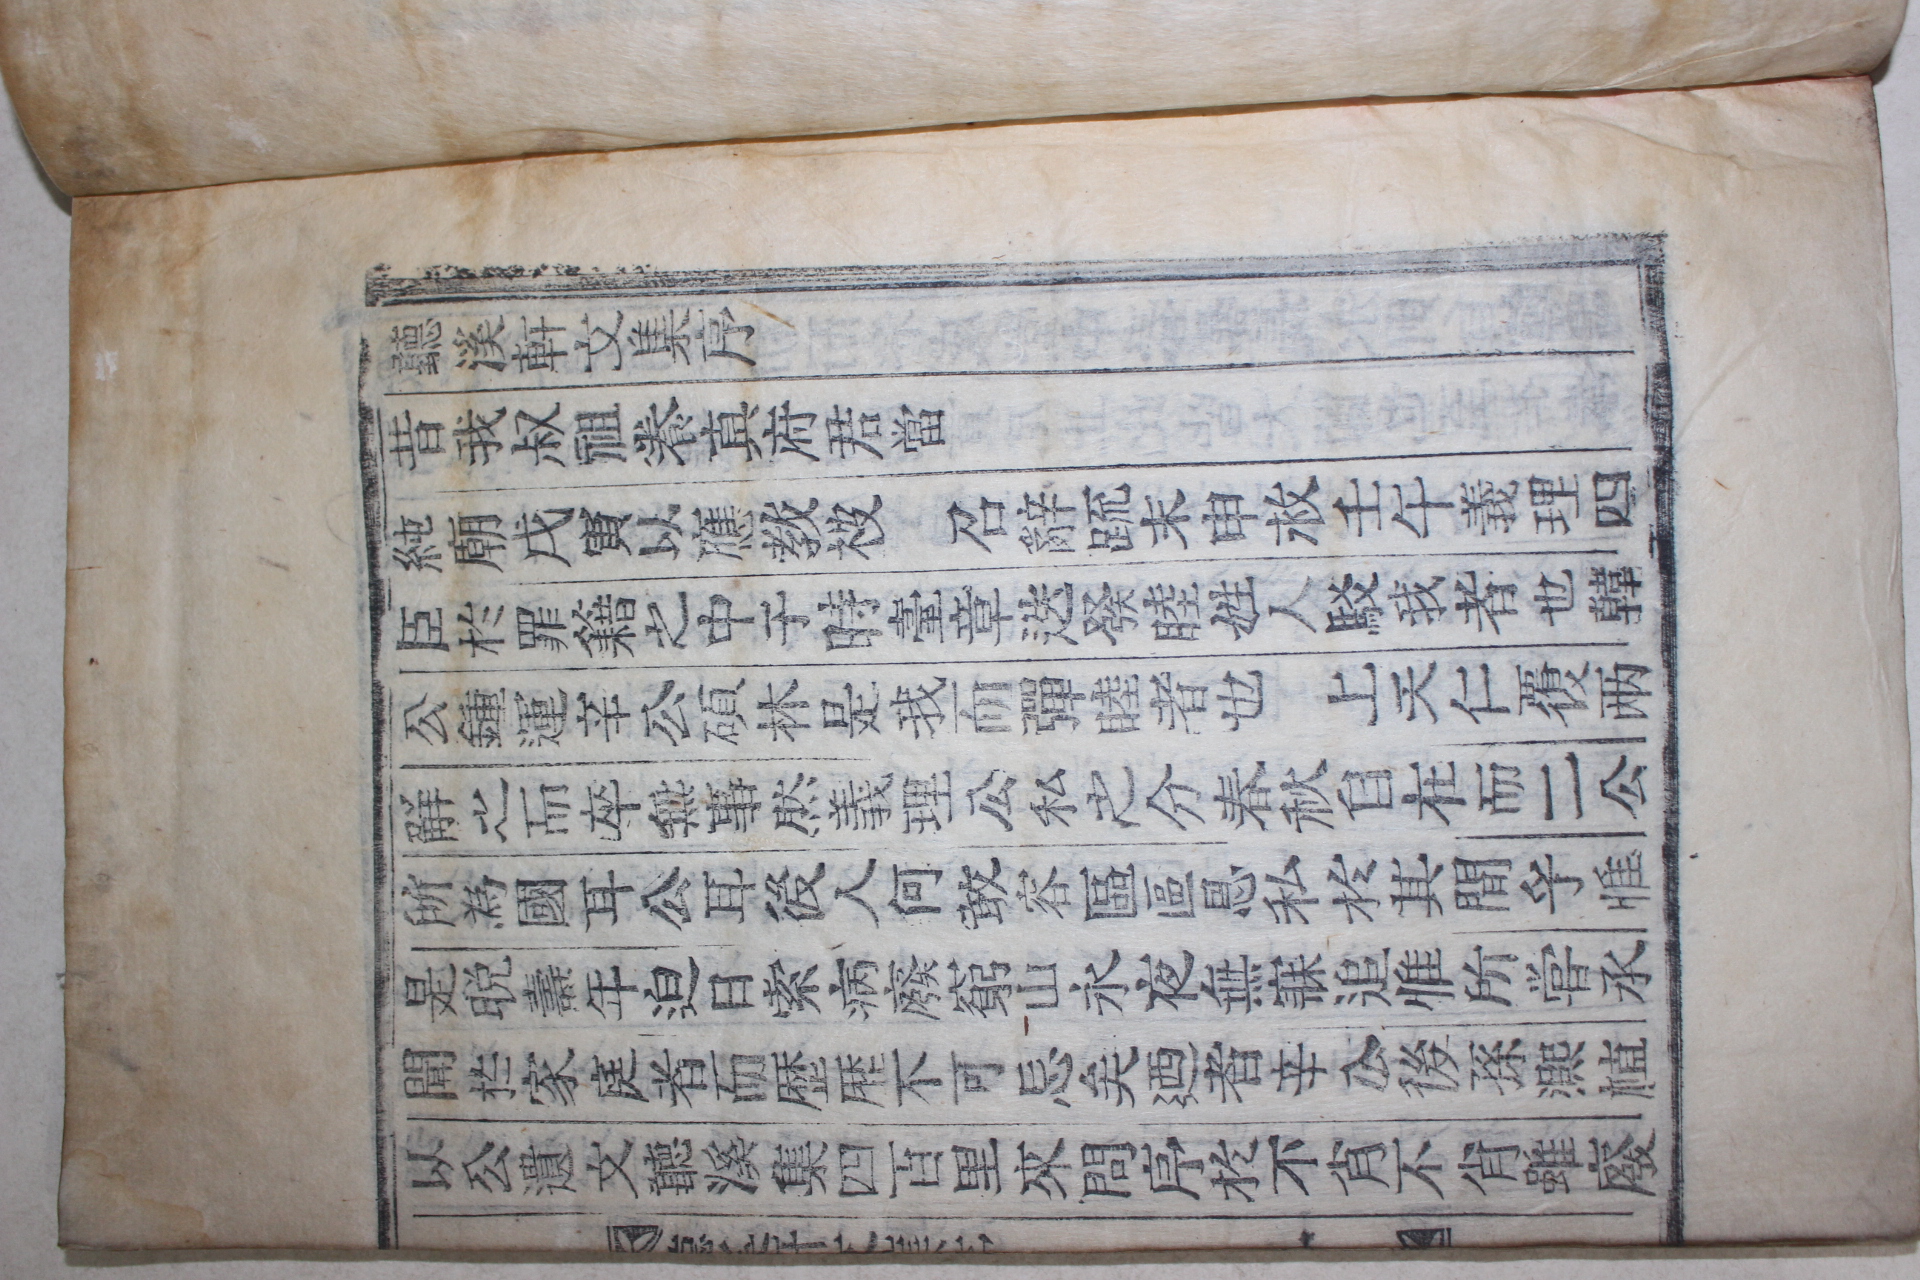 聽溪軒文集序
昔我叔祖養真府君當
純廟戊寅以應教被 召辭疏未申救壬午義理四
臣於罪籍之中于時臺章迭發睦姓人駁我者也韓
公鍾運辛公碩林是我而彈睦者也 上天仁覆兩
解之而卒無事然義理公私之分春秋自在而二公
所爲國耳公耳後人何敢容區區恩私於其間乎惟
是晩壽年迫日索病廢窮山永夜無寐追惟所嘗承
聞於家庭者而歷歷不可忘矣迺者辛公後孫濕植
以公遺文聽溪集四百里來問序於不肖不肖雖廢